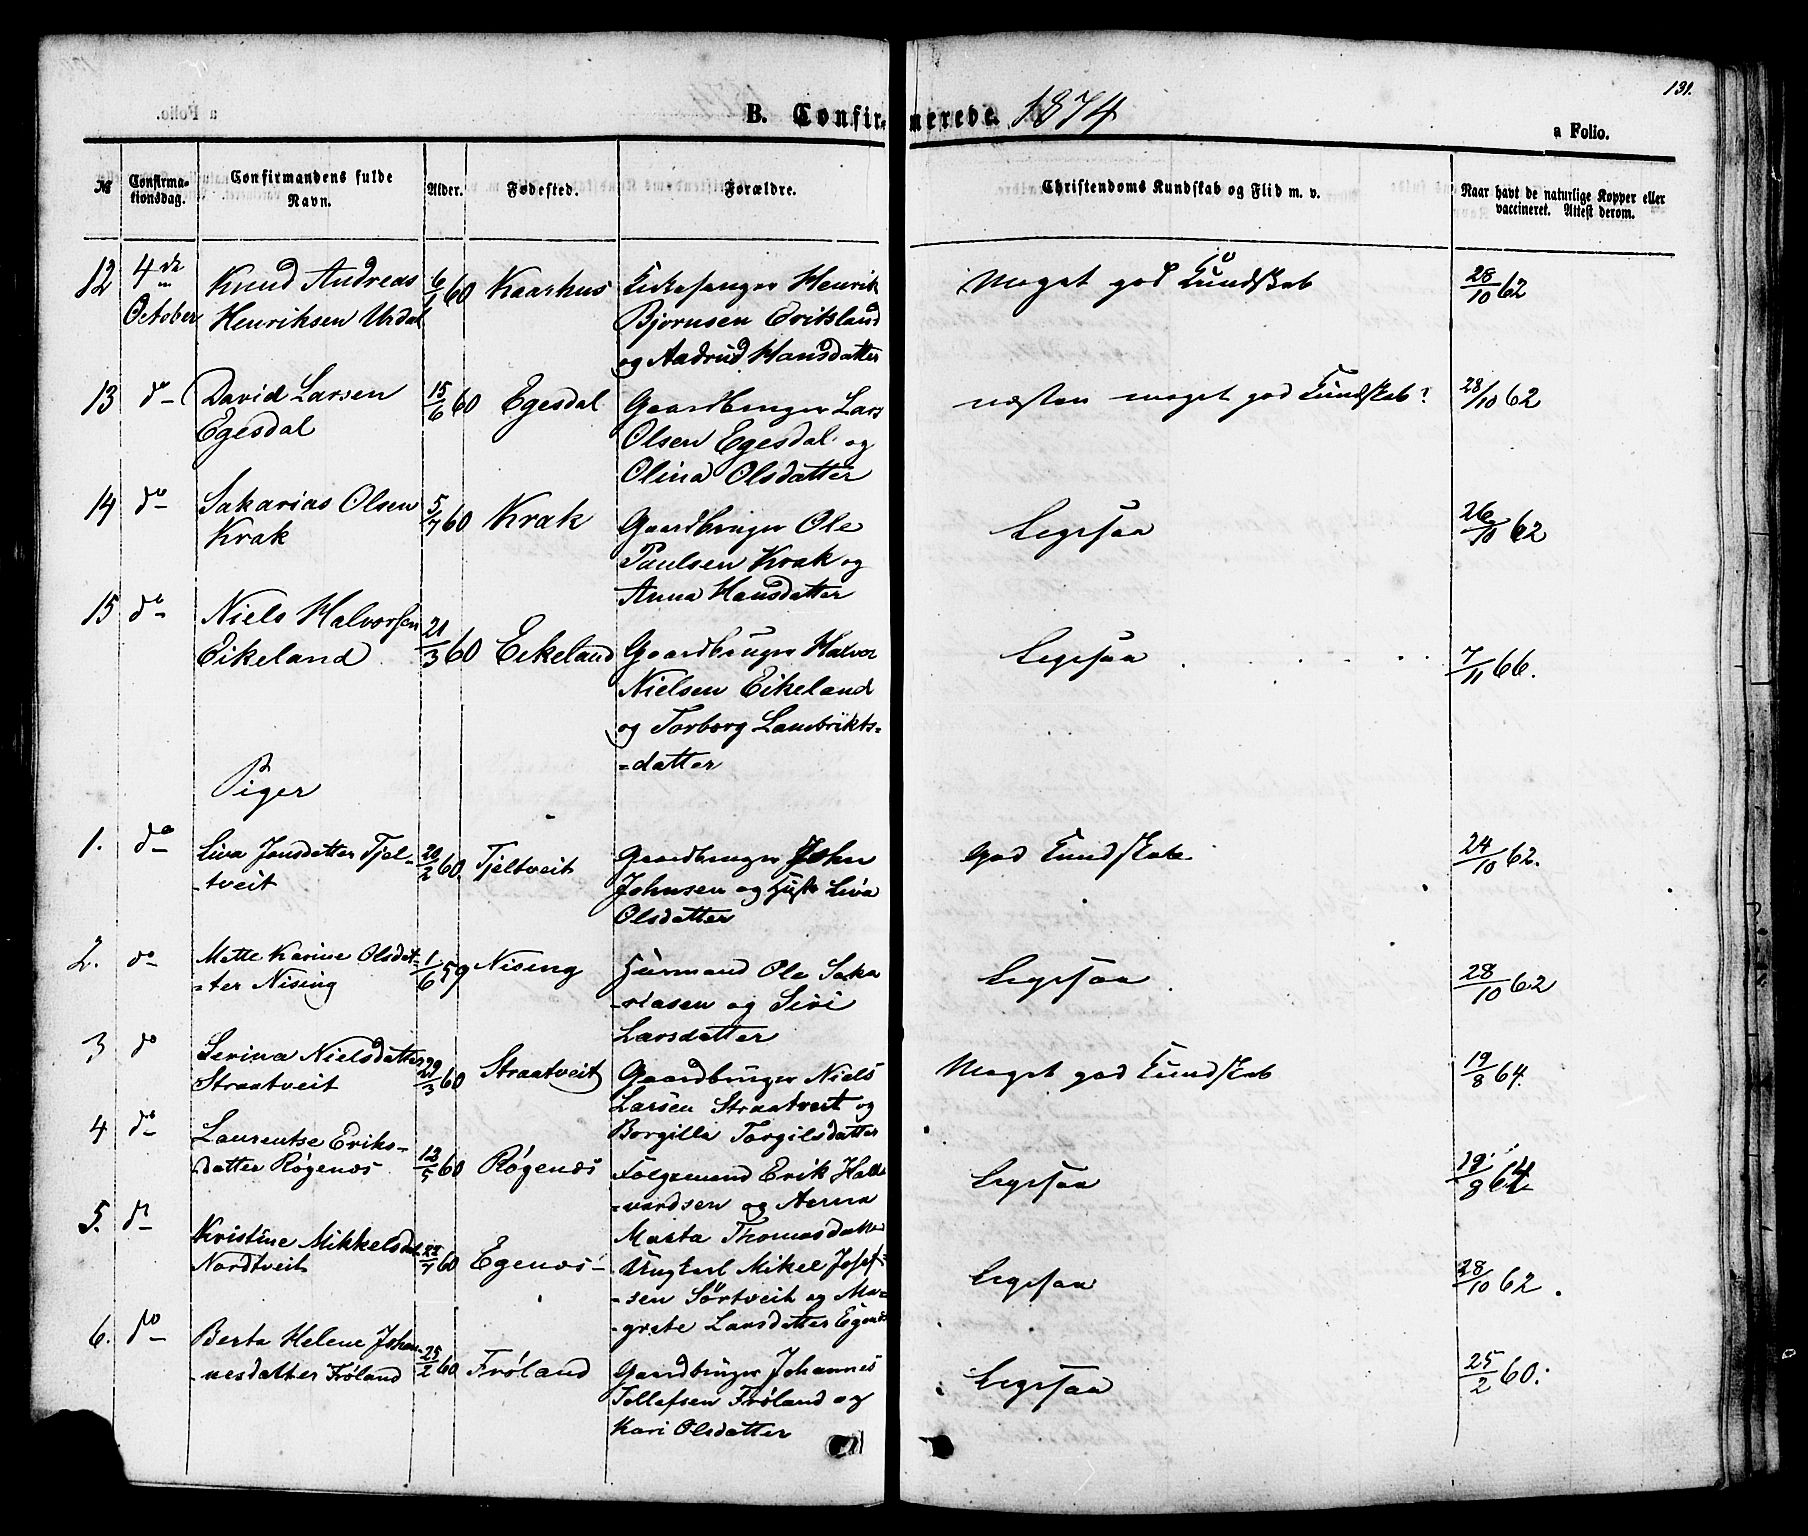 131.
B. Confirmerede. 1874
a Folio.
№
Confirmationsdag.
Confirmandens fulde Navn.
Alder.
Fødested.
Forældre.
Christendoms Kundskab og Flid m. v.
Naar havt de naturlige Kopper eller vaccineret. Attest derom.
12 4de Knud Andreas 6/1 60 Kaarhus Kirkesanger Henrik Meget god Kundskab 28/10 62
October Henriksen Urdal Bjørnsen Eriksland
og Aadrud Hansdatter
13 do David Larsen 15/6 60 Egesdal Gaardbruger Lars næsten meget god Kundskab 28/10 62
Egesdal Olsen Egesdal og
Olina Olsdatter
14 do Sakarias Olsen 5/7 60 Krak Gaardbruger Ole Ligesaa 26/10 62
Krak Paulsen Krak og
Anna Hansdatter
15 do Niels Halvorsen 21/3 60 Eikeland Gaardbruger Halvor Ligesaa 7/11 66.
Eikeland Nielsen Eikeland
og Torborg Lambrikts-
-datter
Piger
1. do Liva Jonsdatter Tjel- 20/2 60. Tjeltveit Gaardbruger John God Kundskab 24/10 62.
-tveit Johnsen og Hust. Liva
Olsdatter
2. do Mette Karine Olsdat- 1/6 59 Nising Huusmand Ole Saka Ligesaa 28/10 62
-ter Nising -riasen og Siri
Larsdatter
3 do Serina Nielsdatter 29/3 60 Straatveit Gaardbruger Niels Meget god Kundskab 19/8 64.
Straatveit Larsen Straatveit og
Borgilla Torgilsdatter
4 do Laurentse Eriks- 13/5 60 Røgenæs Følgemand Erik Hall Ligesaa 19/8 64
datter Røgenæs -vardsen og Anna
Marta Thomasdatter
5. do Kristine Mikkelsdat 22/7 60 Egenæs Ungkarl Mikel Josef- Ligesaa 28/10 62.
Nordtveit -sen Sørtveit og Ma-
-grete Larsdatter Egenæs
6. do Berta Helene Johan- 25/2 60 Frøland Gaardbruger Johannes Ligesaa 25/2 60.
-nesdatter Frøland Tollefsen Frøland og
Kari Olsdatter